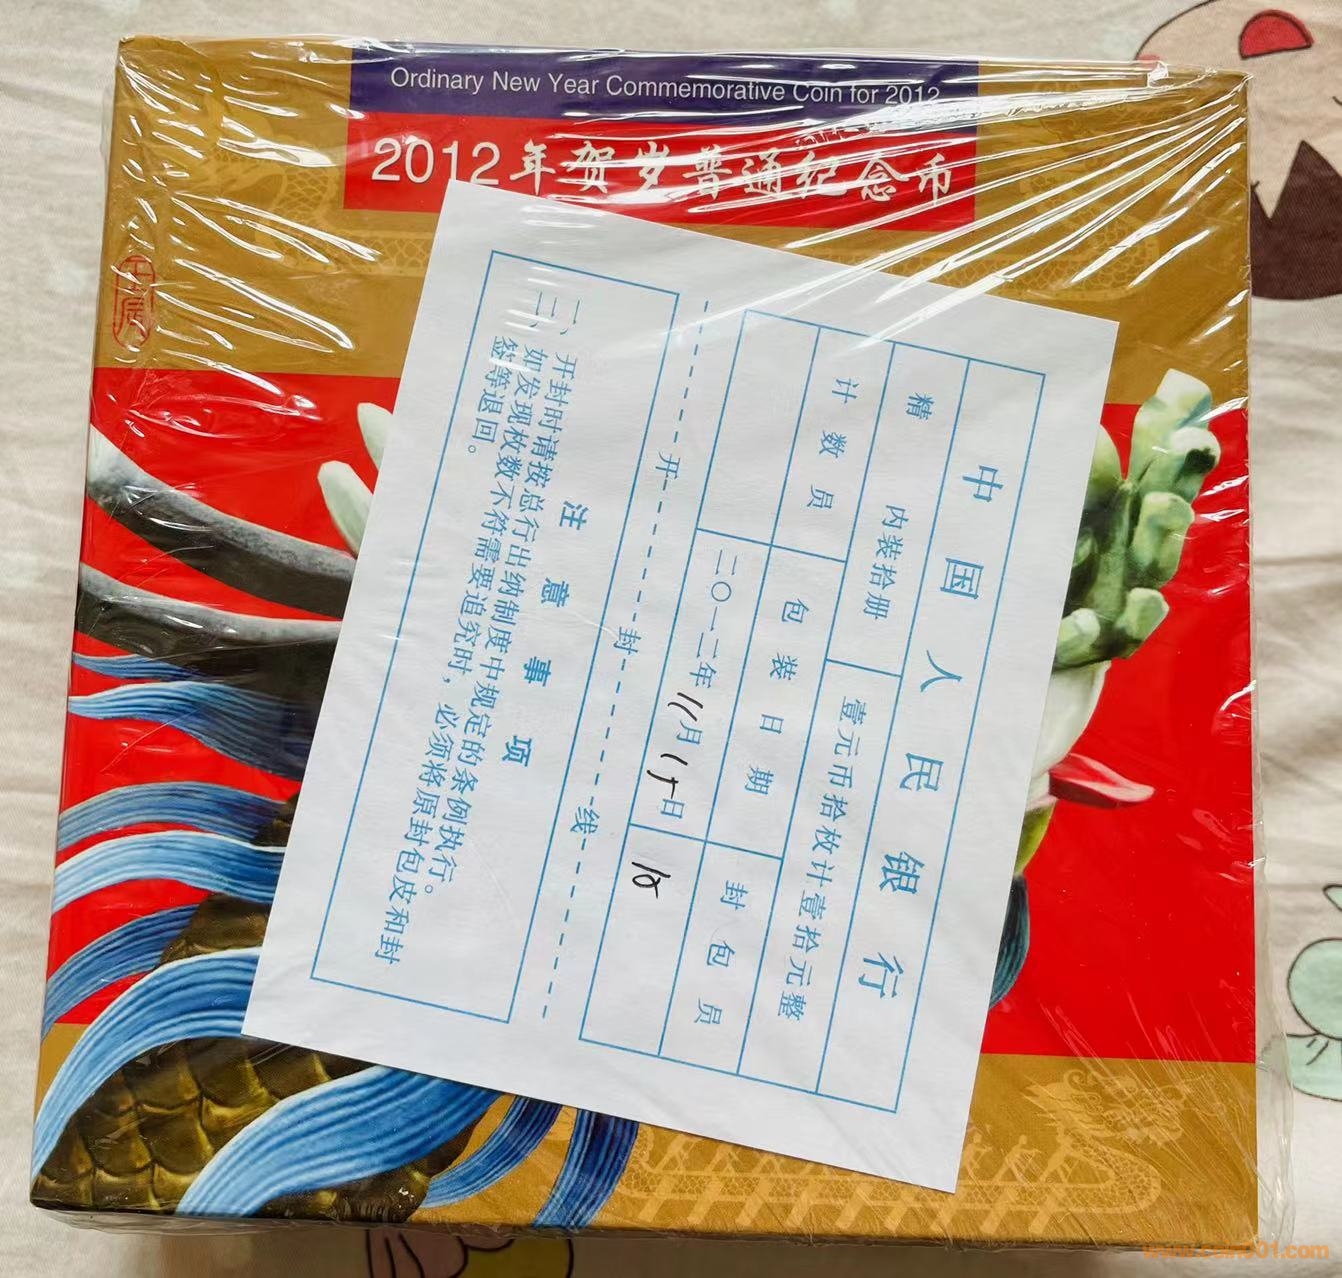 Ordinary New Year Commemorative Coin for 2012
2012年贺岁普通纪念币
壬辰
中国人民银行
精
内装拾册
壹元币拾枚计壹拾元整
计数员
包装日期
封包员
二〇一二年11月15日
10
开封线
注意事项
一、开封时请按总行出纳制度中规定的条例执行。
二、如发现枚数不符需要追究时，必须将原封包皮和封
签等退回。